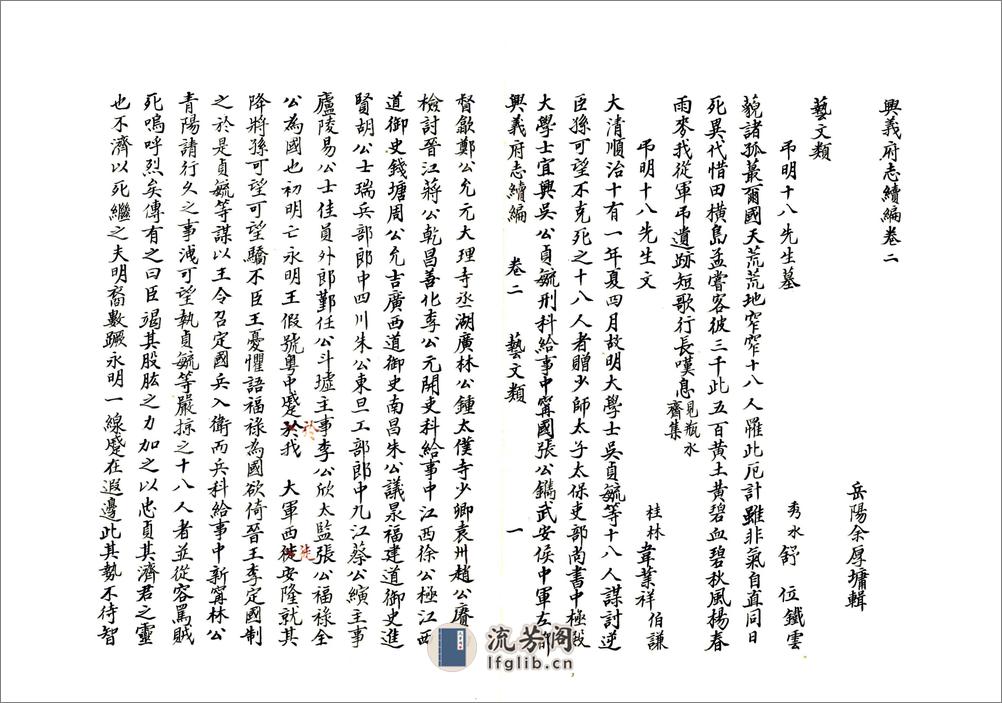 興義府志續編卷二
岳陽余厚墉輯
藝文類
弔明十八先生墓　秀水　舒　位鐵雲
藐諸孤蕞爾國天荒荒地窄窄十八人罹此厄計雖非氣自直同日
死異代惜田橫島孟嘗客彼三千此五百黃土黃碧血碧秋風揚春
雨麥我從軍弔遺跡短歌行長嘆息見瓶水齋集
弔明十八先生文　桂林　韋業祥　伯謙
大清順治十有一年夏四月故明大學士吳貞毓等十八人謀討逆
臣孫可望不克死之十八人者贈少師太子太保吏部尚書中極殿
大學士宜興吳公貞毓刑科給事中甯國張公鐫武安侯中軍左都
興義府志續編　卷二　藝文類　一
督歙鄭公允元大理寺丞湖廣林公鍾太僕寺少卿袁州趙公賡禹
檢討晉江蔣公乾昌善化李公元開吏科給事中江西徐公極江西
道御史錢塘周公允吉廣西道御史南昌朱公議㫤福建道御史進
賢胡公士瑞兵部郎中四川朱公東旦工部郎中九江蔡公縯主事
廬陵易公士佳員外郎鄞任公斗墟主事李公欣太監張公福祿全
公為國也初明亡永明王假號粵中蹙於我　大軍西徙安隆就其
降將孫可望可望驕不臣王憂懼語福祿為國欲倚晉王李定國制
之於是貞毓等謀以王令召定國兵入衛而兵科給事中新甯林公
青陽請行久之事洩可望執貞毓等嚴掠之十八人者並從容罵賊
死嗚呼烈矣傳有之曰臣竭其股肱之力加之以忠貞其濟君之靈
也不濟以死繼之夫明裔數蹶永明一線蹙在遐邊此其勢不待智
於
徙
流芳阁
lfglib.cn